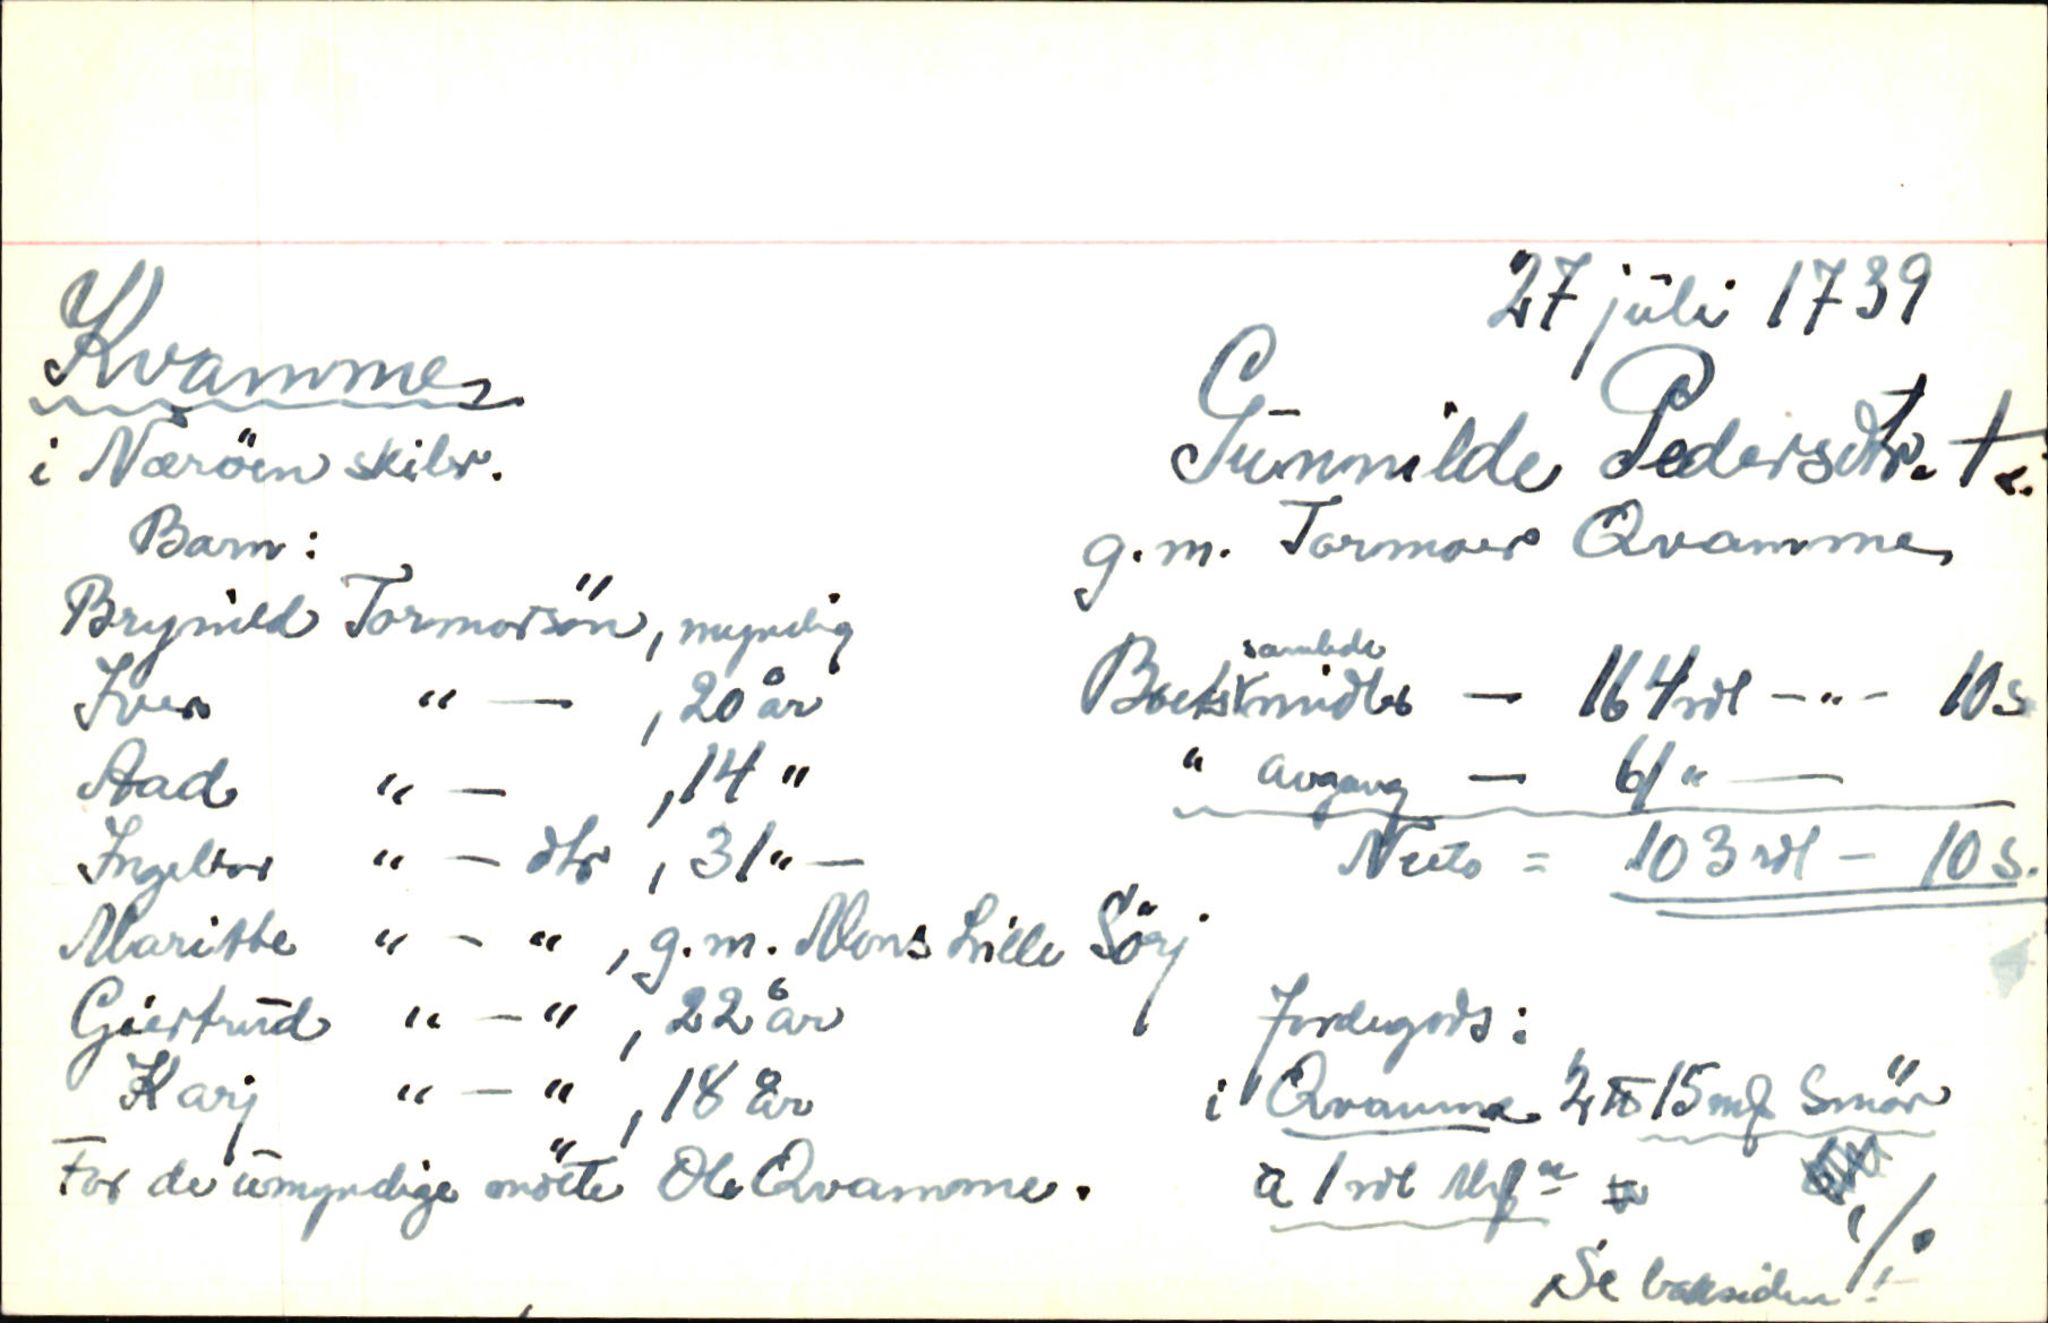 27 juli 1739
Kvamme
i Nærøen skibr.
Gunnilde Pedersdtr. †
g.m. Tormoer Qvamme
Barn:
Brynild Tormorsön, myndig
Iver " — , 20 år
Aad " — , 14 "
Ingebor " — dtr , 31 " —
Maritte " - " , g.m. Mons Lille Sörj
Giertrud " — " , 22 år
Karj " — " , 18 år
For de umyndige mötte Ole Qvamme.
Boets samlede midler — 164 rdl - " - 10 s
" avgang — 61 " —
Netto = 103 rdl — 10 s.
Jordegods:
i Qvamme 2 ℔ 15 mʒ Smör
a 1 rdl
Se baksiden !